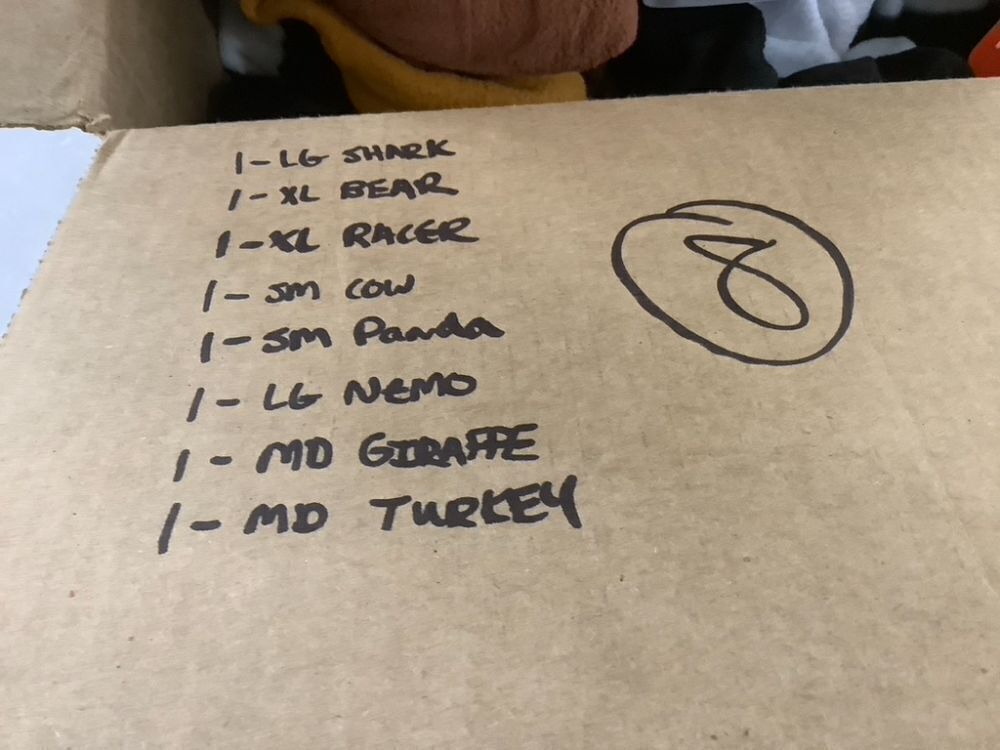 1-LG SHARK
1-XL BEAR
1-XL RACER
1-SM COW
1-SM Panda
1-LG NEMO
1-MD GIRAFFE
1-MD TURKEY
8